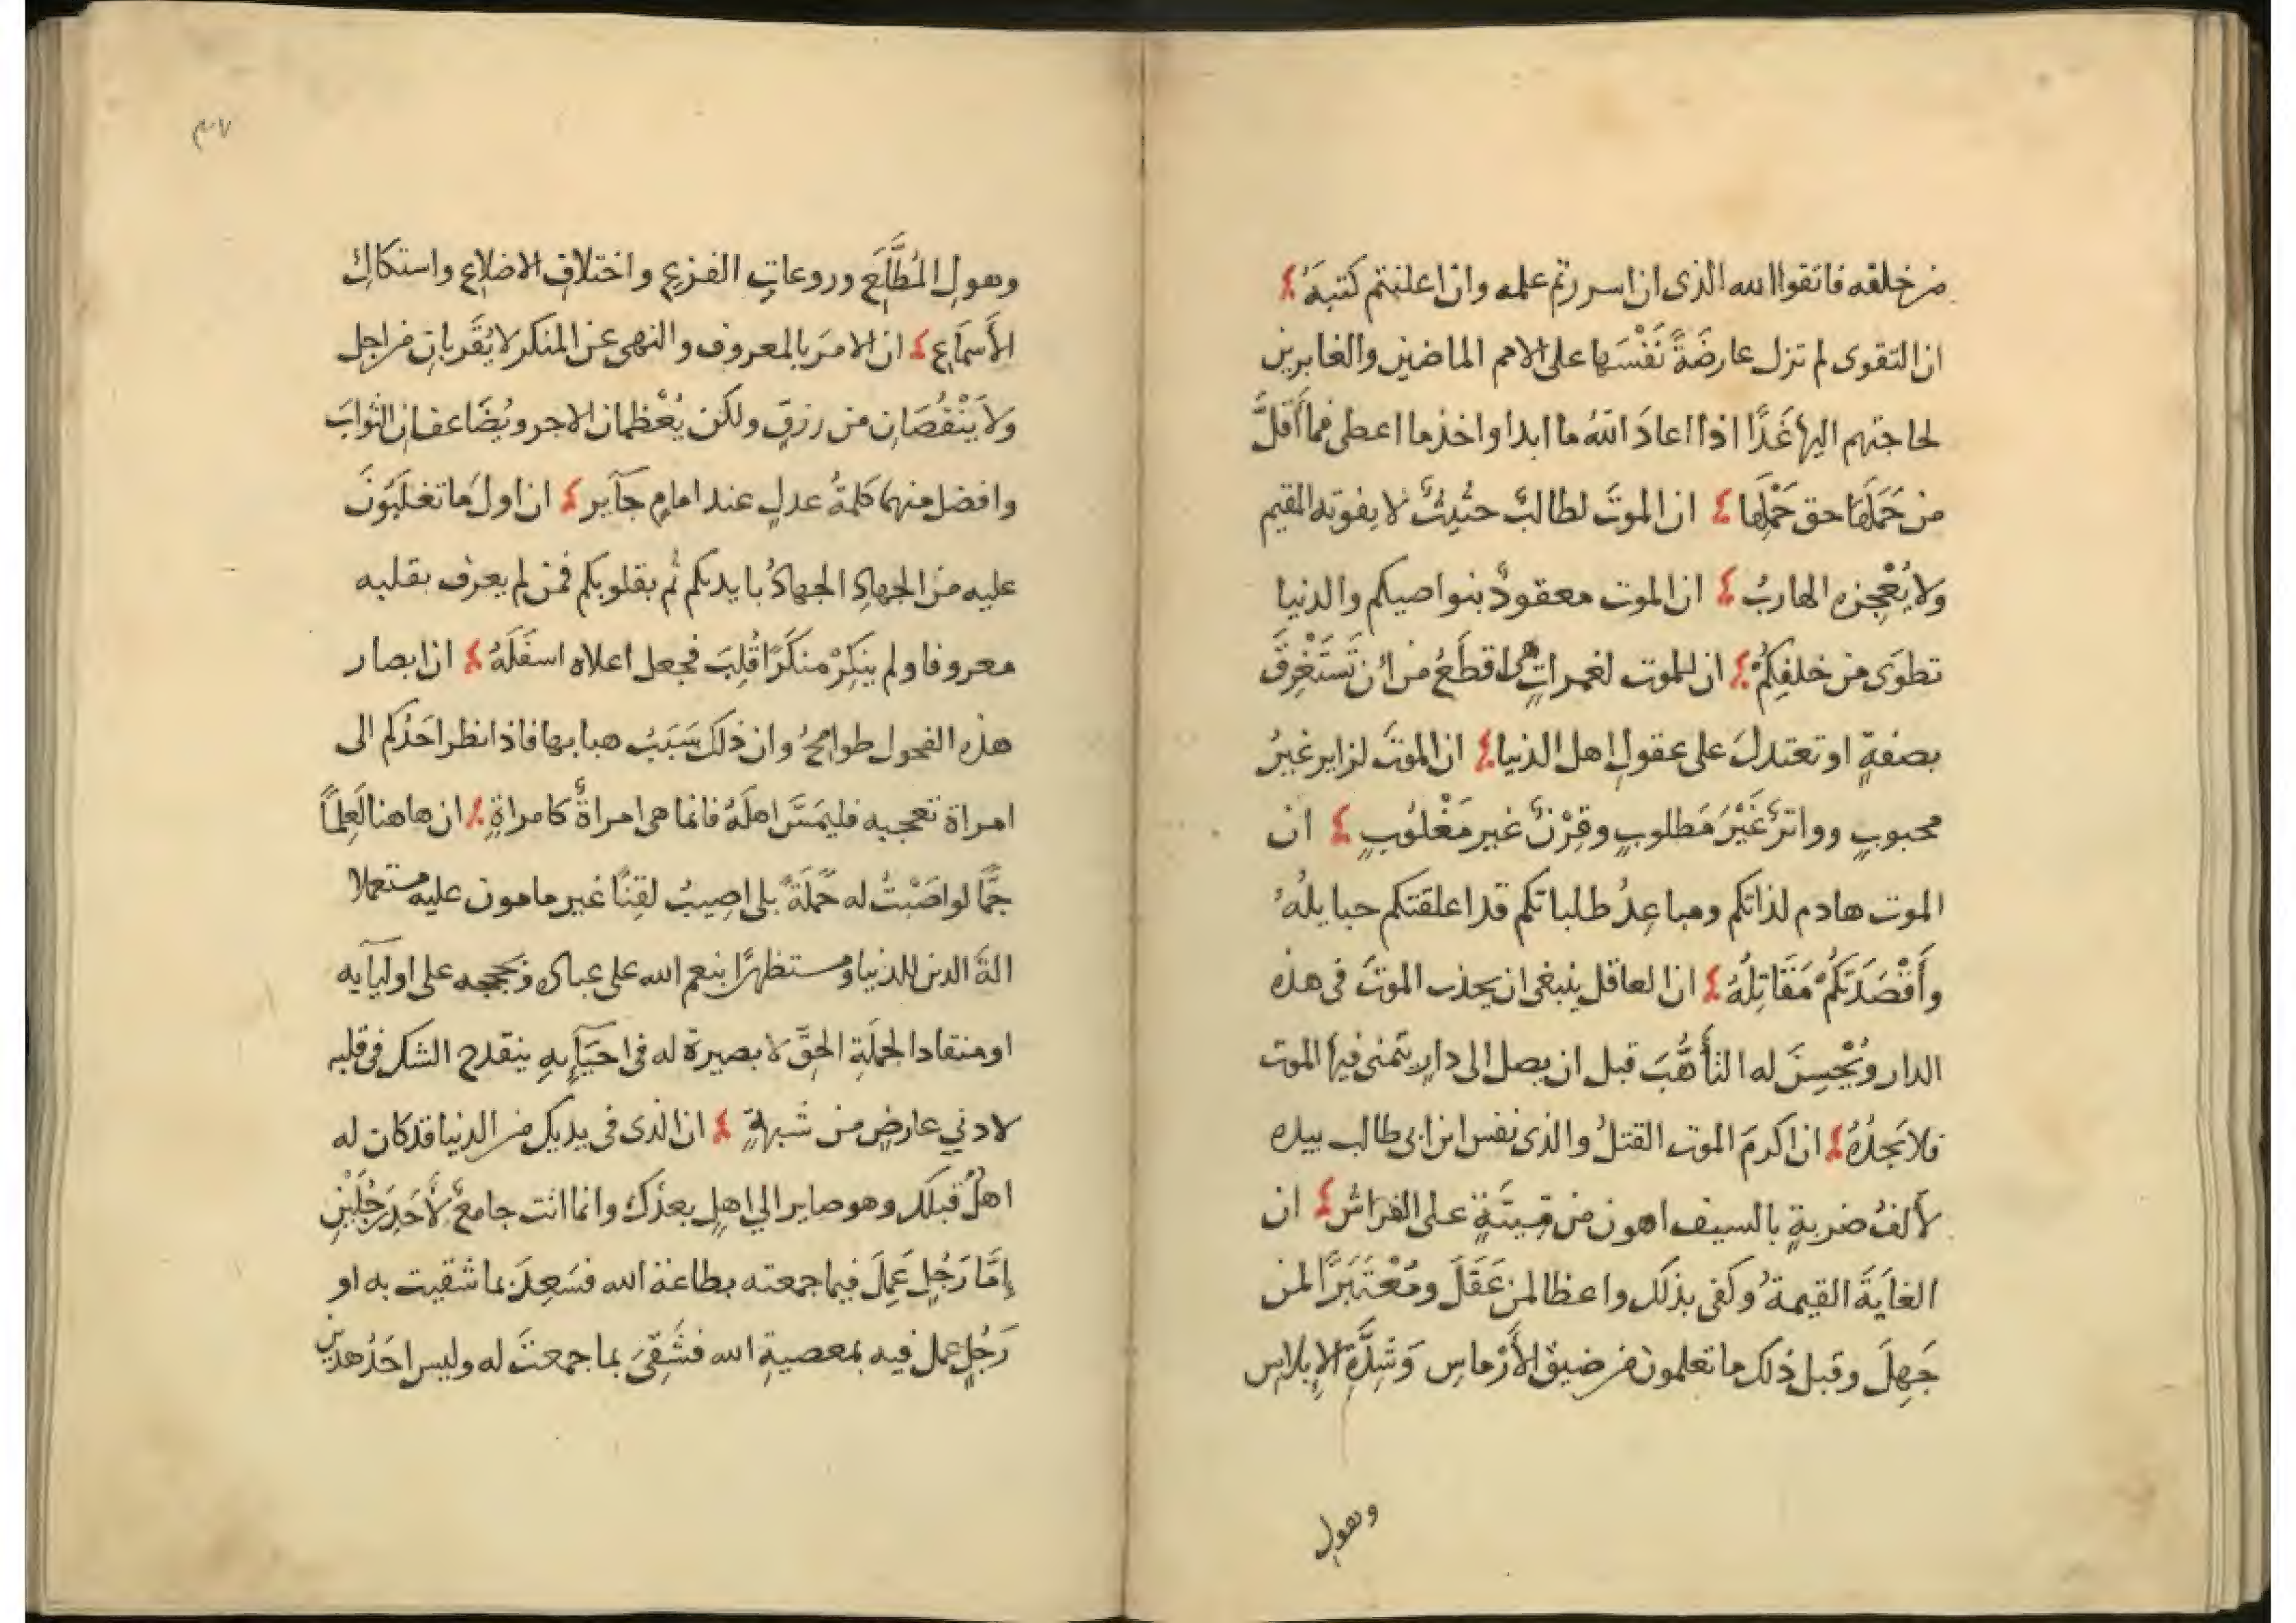 من خلقه فاتقوا الله الذى ان اسررتم علمه وان اعلنتم كتبَهُ
ان التقوى لم تزل عارضَةً نَفْسَها على الامم الماضين والغابرين
لحاجتهم اليها غَدًا اذا اعادَ اللهُ ما ابدا واخذ ما اعطى فما أَقَلَّ
من حَمَلَها حق حَمْلِها ان الموتَ لطالبٌ حثيثٌ لا يفوته المقيم
ولا يُعْجِزه الهاربُ ان الموت معقودٌ بنواصيكم والدنيا
تطوَى من خلفِكُمْ ان للموت لغمراتٍ هى اقطَعُ من ان تَسْتَغْرِقَ
بصفةٍ او تعتدلَ على عقولِ اهل الدنيا ان الموتَ لزاير غيرُ
محبوبٍ وواترٌ غَيْرُ مَطلوبٍ وقِرْنٌ غير مَغْلُوبٍ ان
الموت هادم لذاتكم ومباعِدُ طلباتكم قد اعلقتكم حبايلُهُ
وأَقْصَدَتكُمْ مَقَاتِلُهُ ان العاقل ينبغى ان يحذر الموتَ فى هذه
الدار ويُحْسِنَ له التأهُّبَ قبل ان يصل الى دارٍ يتمنى فيها الموت
فلا يَجدُهُ ان اكرمَ الموت القتلُ والذى نفس ابن ابى طالب بيده
لألفُ ضربةٍ بالسيف اهون من مِيتَةٍ على الفراش ان
الغايَةَ القيمةُ وكفى بذلك واعظا لمن عَقَلَ ومُعْتَبَرًا لمن
جَهِلَ وقبل ذلك ما تعلمون من ضيق الأَرْماسِ وَشِدَّةِ الإِبلاسِ
وهول
٣٧
وهولِ المُطَّلَعِ وروعاتِ الفزعِ واختلافِ الاضلاعِ واستكاكِ
الأَسمَاعِ ان الامرَ بالمعروف والنهى عن المنكر لا يُقَرِّبانِ من اجل
ولا يَنْقُصَانِ من رزقٍ ولكن يُعْظمان الاجر ويُضَاعفانِ الثوابَ
وافضل منهما كلمةُ عدلٍ عند امامٍ جآير ان اولَ ما تغلَبُونَ
عليه من الجهادِ الجهادُ بايديكم ثم بقلوبكم فمن لم يعرف بقلبه
معروفا ولم يُنكِرْ منكَرًا قُلِبَ فجعل اعلاه اسفَلَهُ ان ابصار
هذه الفحول طوامحُ وان ذلك سَبَبُ هبابها فاذا نظر احَدُكم الى
امراة تعجبه فليمَسَّ اهلَهُ فانما هى امراةٌ كامراةٍ ان هاهنا لَعِلمًا
جمًّا لو اصَبْتُ له حَمَلَةً بلى اصِيبُ لقِنًا غير مامون عليه مستعملا
الةَ الدين للدنيا ومستظهرًا بنعم الله على عباده وبحججه على اوليآيه
او منقادا لجملَةِ الحقّ لا بصيرة له فى احيَآيِهِ ينقدح الشك فى قلبه
لادني عارضٍ من شبهةٍ ان الذى فى يديك من الدنيا قد كان له
اهلٌ قبلك وهو صاير الي اهلٍ بعدَك وانما انت جامعٌ لأَحَدِ رَجُلَيْنِ
إِمَّا رَجُلٍ عَمِلَ فيما جمعته بطاعة الله فسَعِدَ بما شقيت به او
رَجُلٍ عمل فيه بمعصيةِ الله فشَقِىَ بما جمعتَ له وليس احَدُ هذين